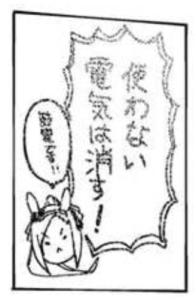 使わない
電気は消す!
節電する!!